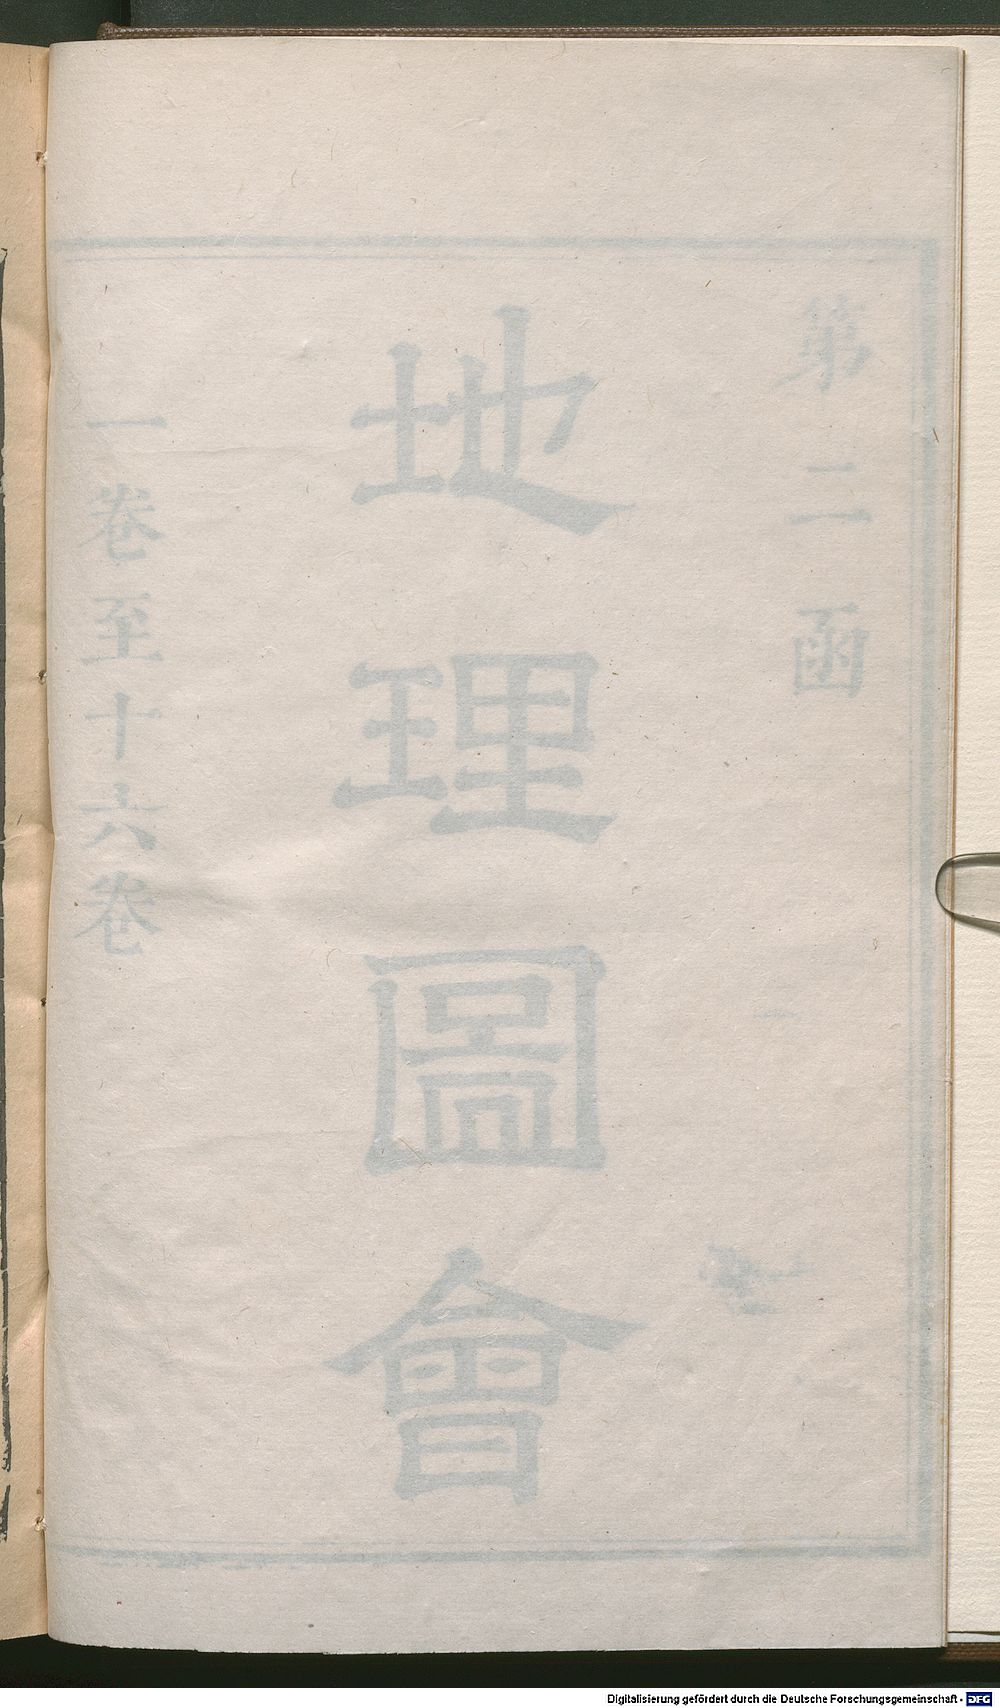 第二函
地理圖會
一卷至十六卷
Digitalisierung gefördert durch die Deutsche Forschungsgemeinschaft - DFG